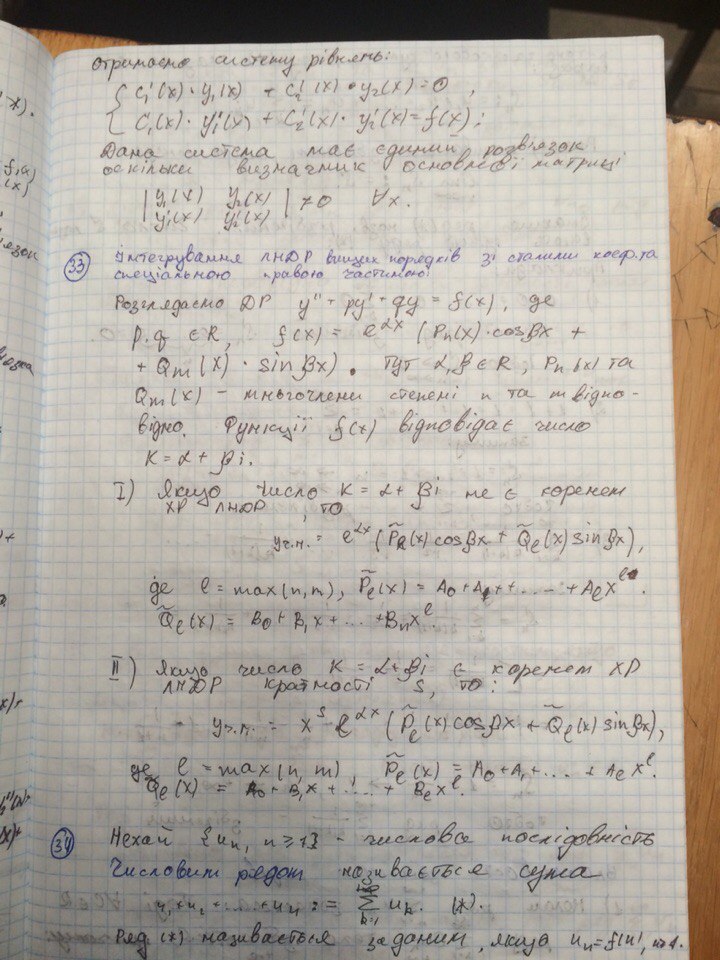 Отримаємо систему рівнянь:
{ C₁'(x)·y₁(x) + C₂'(x)·y₂(x)=0,
{ C₁(x)·y₁'(x) + C₂'(x)·y₂'(x)=f(x);
Дана система має єдиний розв'язок
оскільки визначник основної матриці
| y₁(x) y₂(x) |
| y₁'(x) y₂'(x) | ≠0 ∀x.
33 Інтегрування ЛНДР вищих порядків зі сталими коеф. та
спеціальною правою частиною:
Розглядаємо ДР y'' + py' + qy = f(x), де
p,q ∈ R, f(x) = e^{αx} (Pn(x)·cosβx +
+ Qm(x)·sinβx). Тут α,β ∈ R, Pn(x) та
Qm(x) – многочлени степені n та m відпо-
відно. Функції f(x) відповідає число
K = α + βi.
I) Якщо число K = α + βi не є коренем
ХР ЛНДР, то
yч.н. = e^{αx} (P̃ₑ(x)cosβx + Q̃ₑ(x)sinβx),
де l = max(n,m), P̃ₑ(x) = A₀+A₁+ .... + Aₑx^l.
Q̃ₑ(x) = B₀+B₁x+...+Bₙx^l.
II) Якщо число K = α+βi є коренем ХР
ЛНДР кратності s, то:
yч.н. = x^s e^{αx} (P̃ₑ(x)cosβx + Q̃ₑ(x)sinβx),
де l = max(n,m), P̃ₑ(x) = A₀+A₁+...+Aₑx^l.
Q̃ₑ(x) = B₀+B₁x+...+Bₑx^l.
34 Нехай {uₙ, n≥1} – числова послідовність
Числовим рядом називається сума
u₁+u₂+...+uₙ := ∑_{k=1}^{∞} uₖ. (*).
Ряд (*) називається заданим, якщо uₙ=f(n), n≥1.